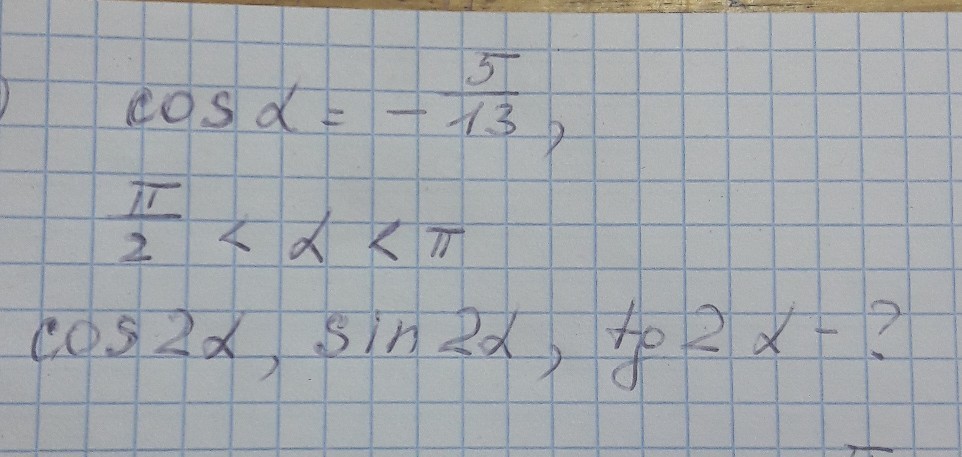 cos α = - 5/13,
π/2 < α < π
cos 2α, sin 2α, tg 2α - ?